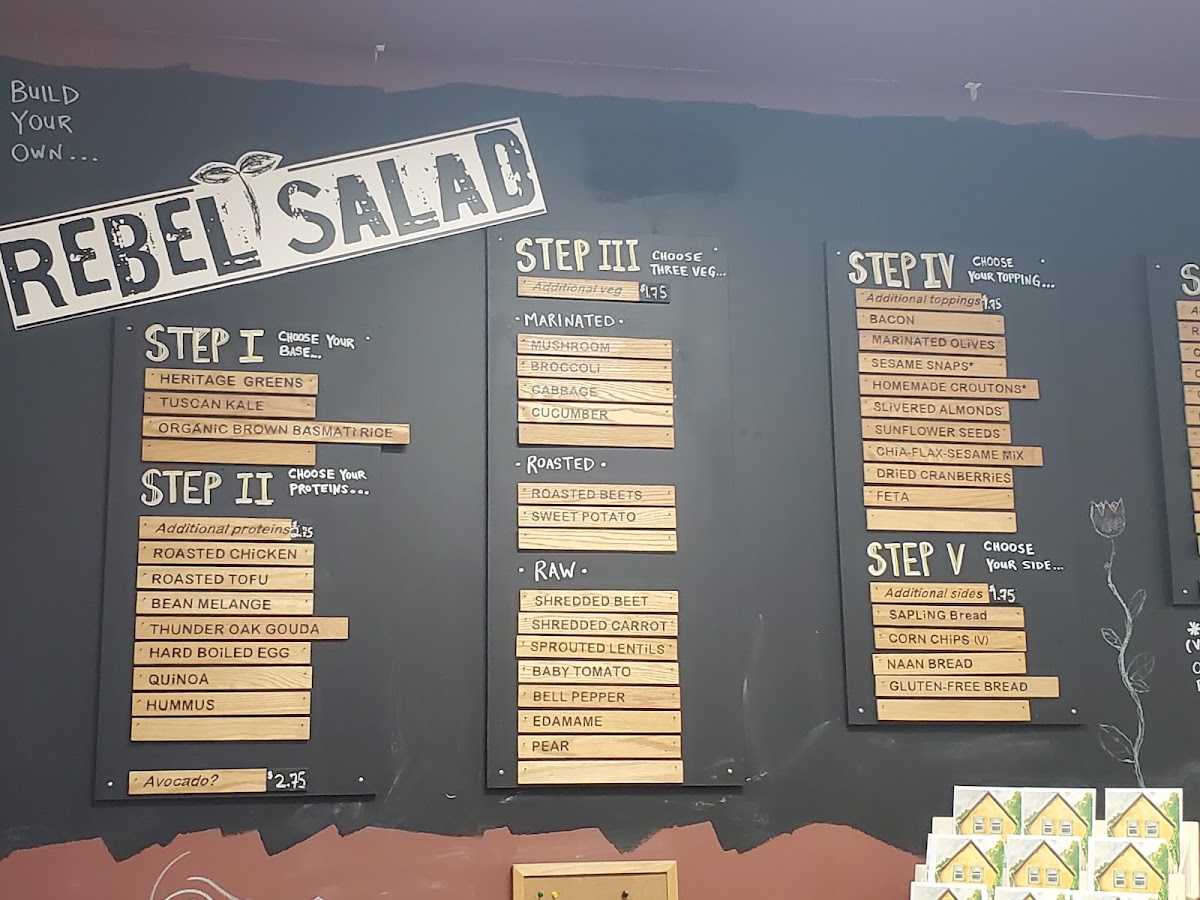 BUILD
YOUR
OWN...
REBEL SALAD
STEP I CHOOSE YOUR
BASE...
HERITAGE GREENS
TUSCAN KALE
ORGANIC BROWN BASMATI RICE
STEP II CHOOSE YOUR
PROTEINS...
Additional proteins $2.75
ROASTED CHICKEN
ROASTED TOFU
BEAN MELANGE
THUNDER OAK GOUDA
HARD BOILED EGG
QUINOA
HUMMUS
Avocado? $2.75
STEP III CHOOSE
THREE VEG...
Additional veg $1.75
• MARINATED •
MUSHROOM
BROCCOLI
CABBAGE
CUCUMBER
• ROASTED •
ROASTED BEETS
SWEET POTATO
• RAW •
SHREDDED BEET
SHREDDED CARROT
SPROUTED LENTILS
BABY TOMATO
BELL PEPPER
EDAMAME
PEAR
STEP IV CHOOSE
YOUR TOPPING...
Additional toppings $1.75
BACON
MARINATED OLIVES
SESAME SNAPS*
HOMEMADE CROUTONS*
SLIVERED ALMONDS
SUNFLOWER SEEDS
CHIA-FLAX-SESAME MIX
DRIED CRANBERRIES
FETA
STEP V CHOOSE
YOUR SIDE...
Additional sides $1.75
SAPLING Bread
CORN CHIPS (V)
NAAN BREAD
GLUTEN-FREE BREAD